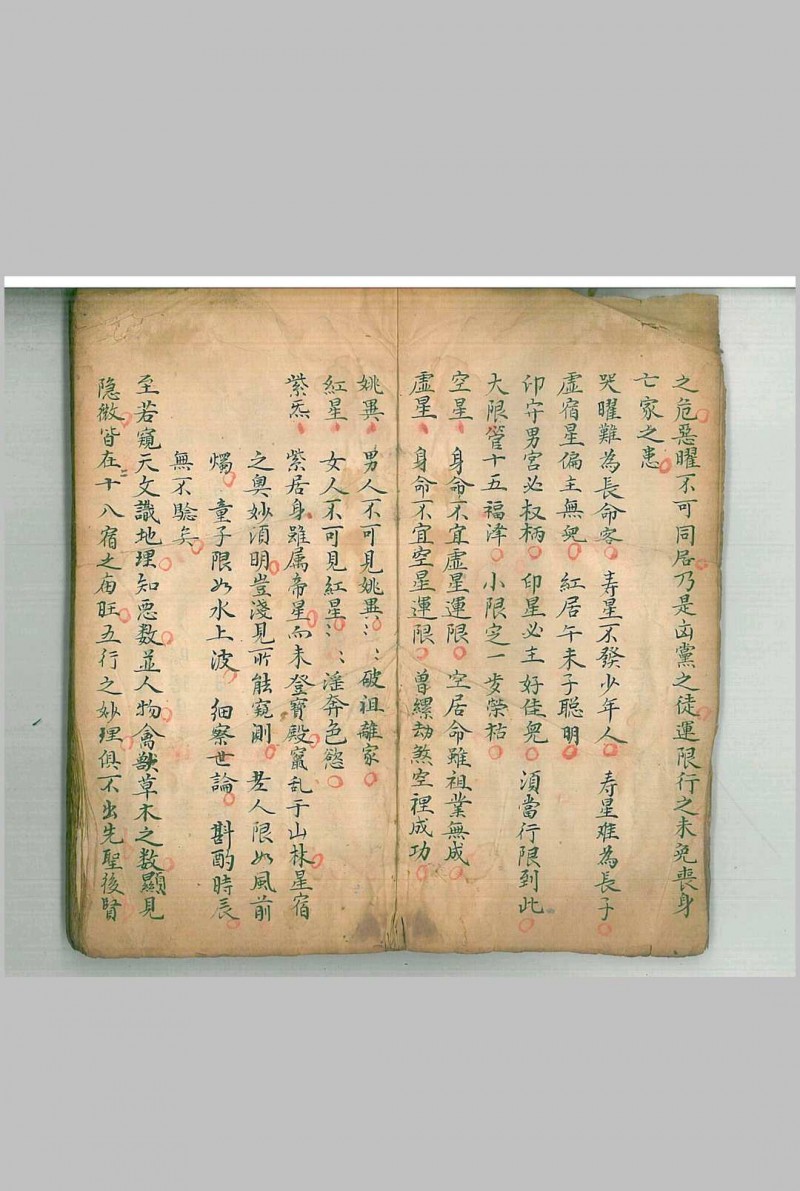 之危惡曜不可同居乃是凶黨之徒運限行之未免喪身
亡家之患
哭曜難為長命客 寿星不發少年人 寿星难為長子
虚宿星偏主無兒 紅居午未子聪明
印守男宮必权柄 印星必主好佳兒 須當行限到此
大限管十五福泽 小限定一步荣枯
空星 身命不宜虚星運限 空居命雖祖業無成
虚星 身命不宜空星運限 曾 劫煞空裡成功
姚異 男人不可見姚異:::破祖離家
紅星 女人不可見紅星:::淫奔色慾
紫炁 紫居身雖属帝星而未登寶殿竄乱于山林星宿
之奥妙須明豈淺見所能窺測 老人限如風前
燭 童子限如水上波 细察世論 斟酌時辰
無不驗矣
至若窺天文識地理知 数並人物禽獸草木之数顯見
隐微皆在二十八宿之庙旺五行之妙理俱不出先聖後賢